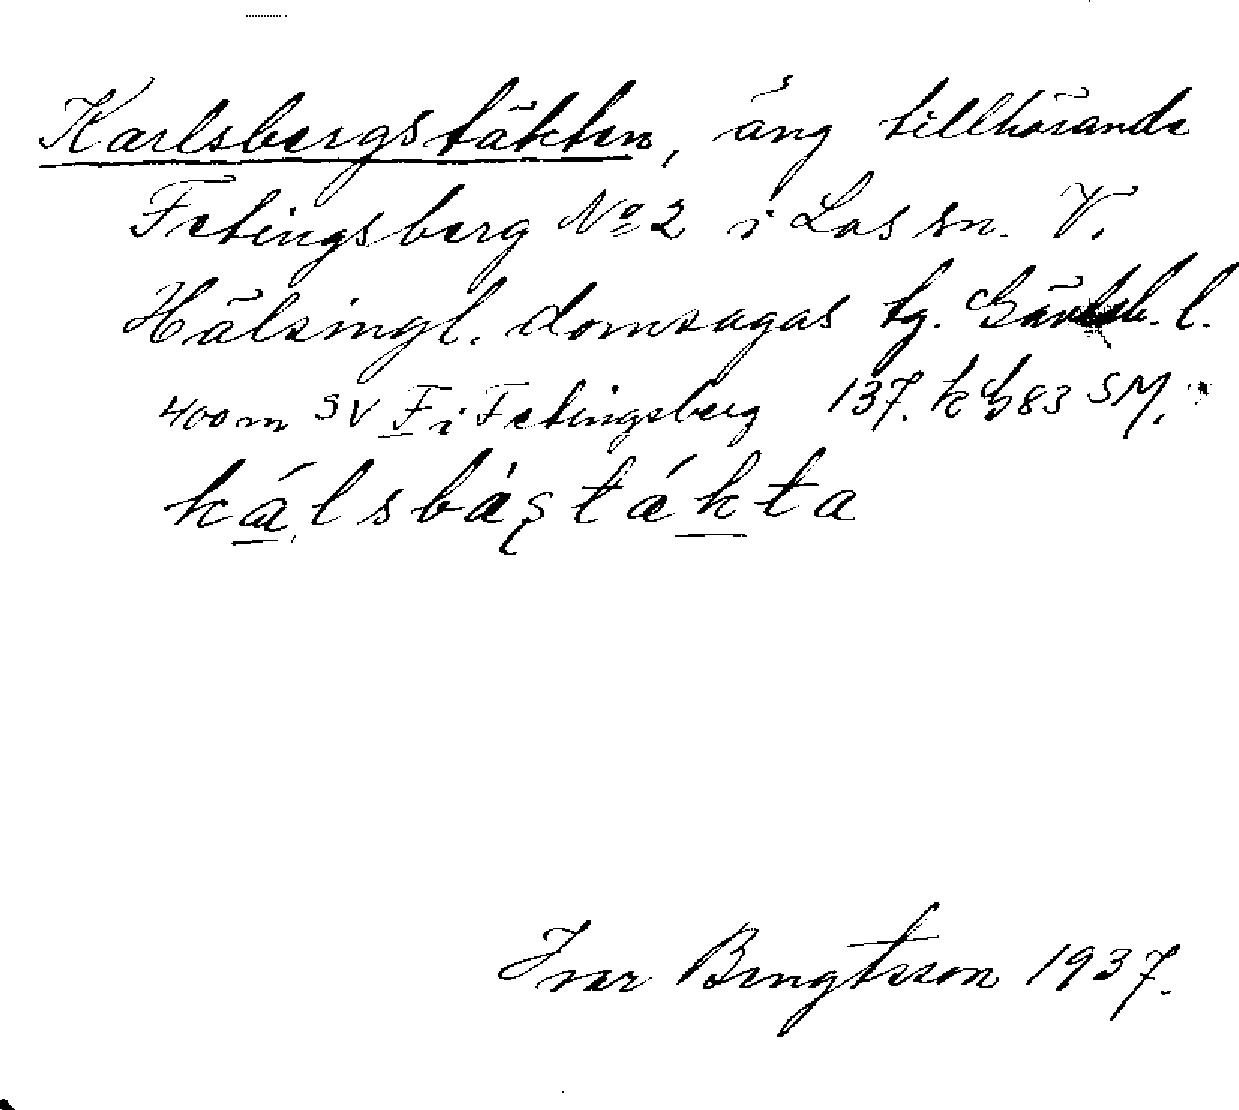 Karlsbergstäkten, äng tillhörande
Fetingsberg No 2 i Los sn. V.
Hälsingl. domsagas tg. Gävleb. l.
400 m SV F i Fetingsberg 137. k G 83 SM.
kálsbástákta
Ivar Bengtsson 1937.